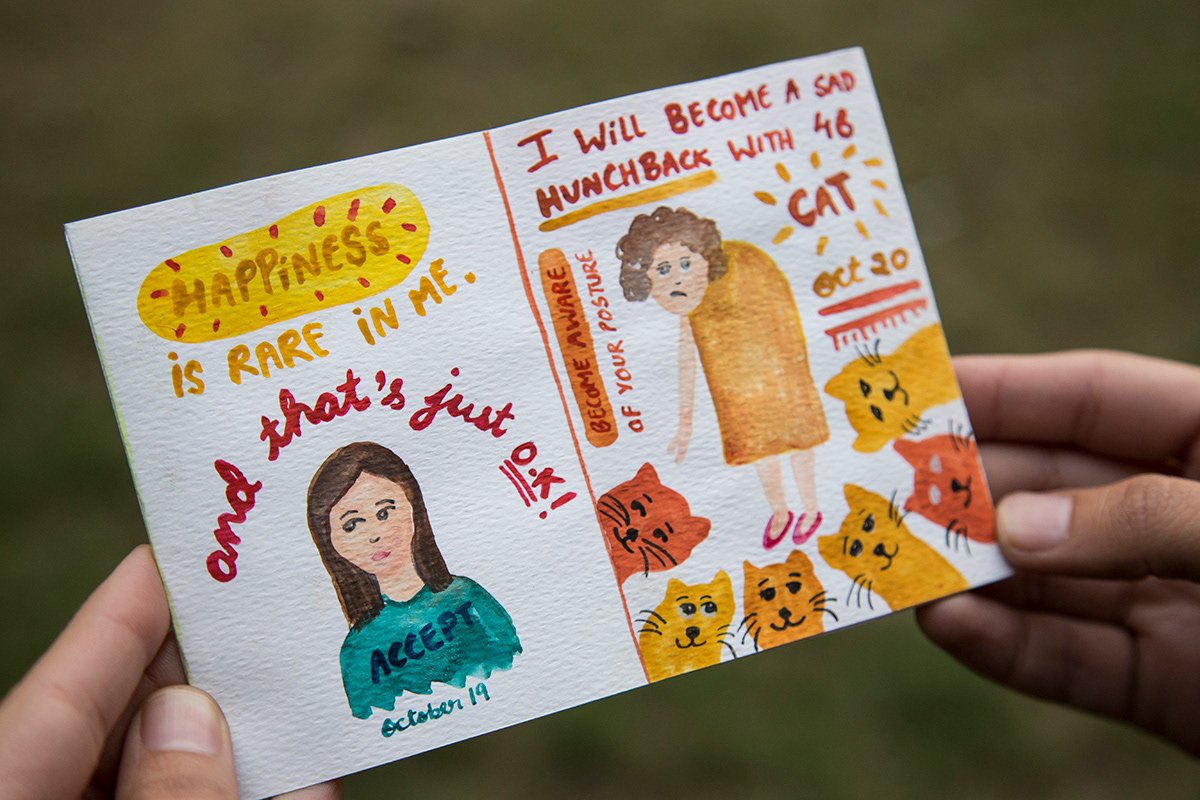 HAPPiNESS
iS RARE iN ME.
and that's just
O.K!
ACCEPT
october 19
I WiLL BECOME A SAD
HUNCHBACK WITH 46
CAT
oct 20
BECOME AWARE
OF YOUR POSTURE